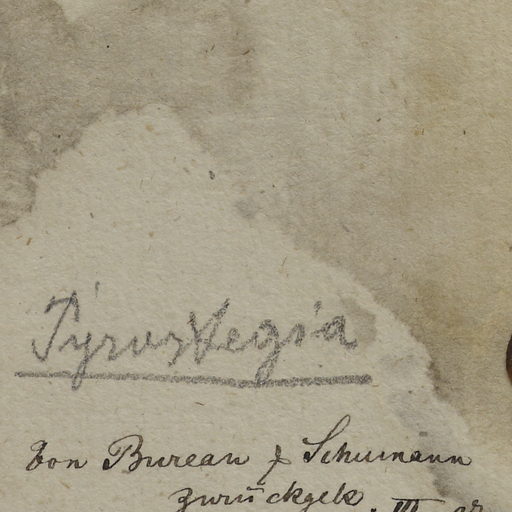 Pyrostegia
von Bureau & Schumann
zurückgek.
III